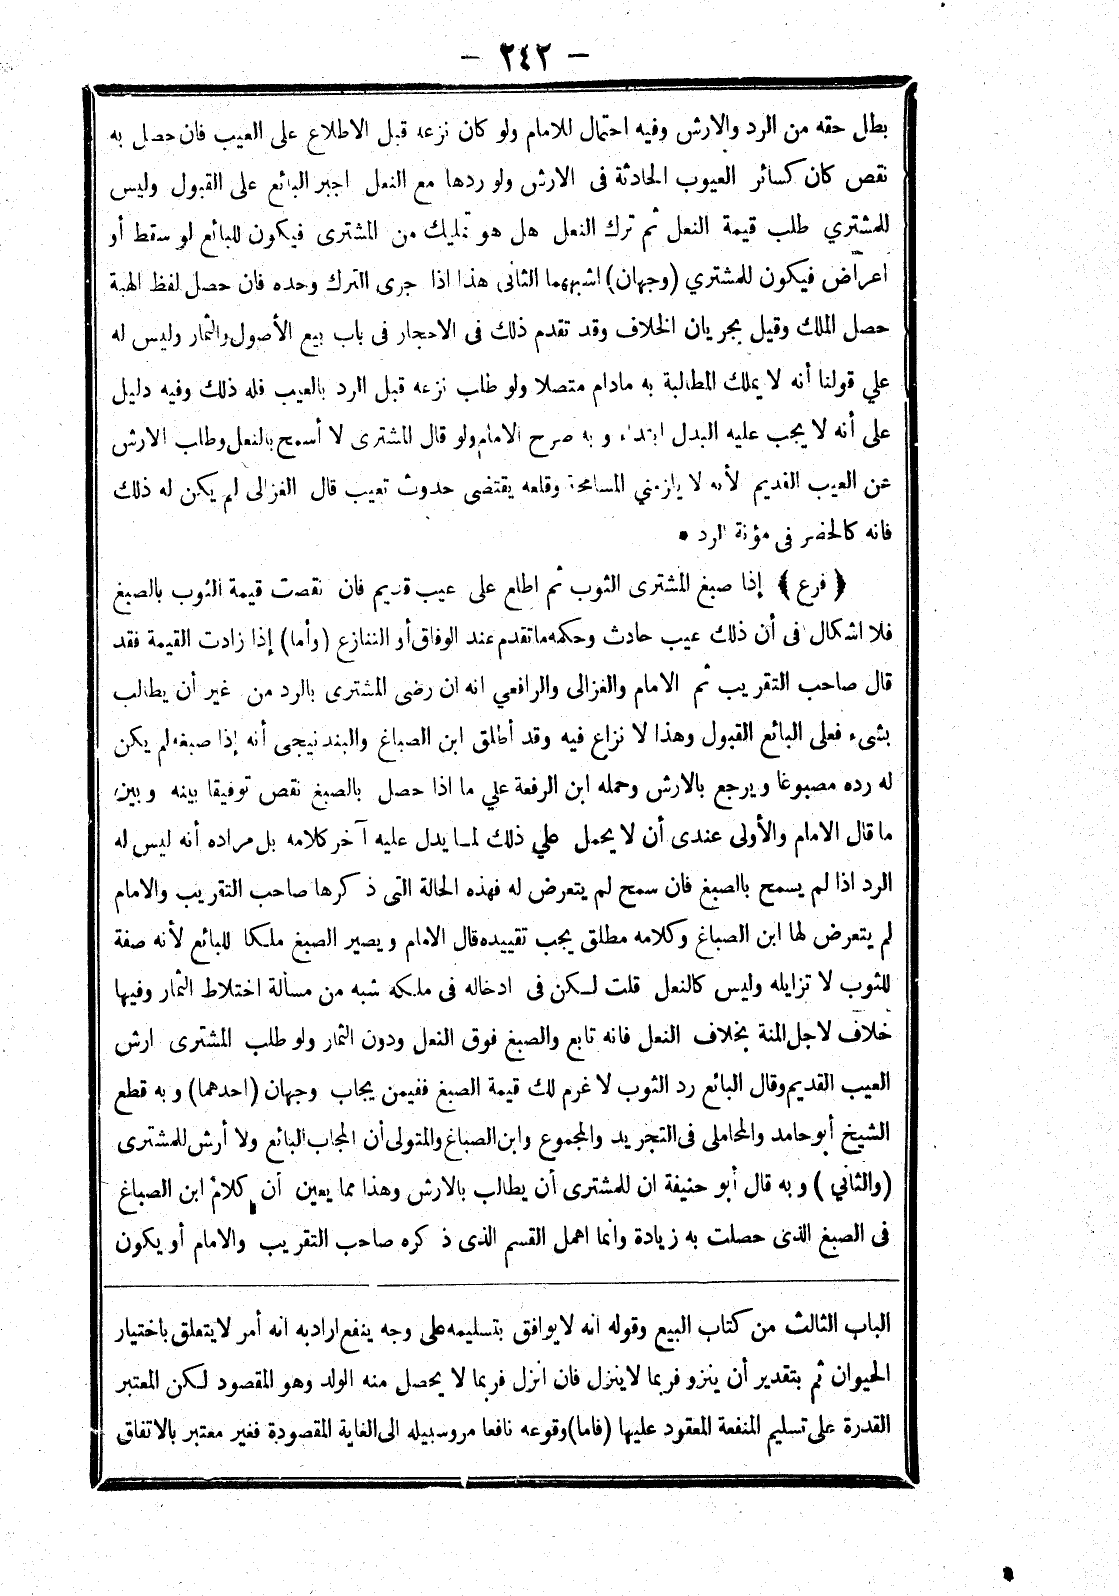 — ٢٤٢ —
بطل حقه من الرد والارش وفيه احتمال للامام ولو كان نزعه قبل الاطلاع على العيب فان حصل به
نقص كان كسائر العيوب الحادثة فى الارش ولو ردها مع النعل اجبر البائع على القبول وليس
للمشتري طلب قيمة النعل ثم ترك النعل هل هو تمليك من المشترى فيكون للبائع لو سقط أو
اعراض فيكون للمشتري (وجهان) اشبههما الثانى هذا اذا جرى الترك وحده فان حصل لفظ الهبة
حصل الملك وقيل بجريان الخلاف وقد تقدم ذلك فى الاحجار فى باب بيع الأصول والثمار وليس له
علي قولنا أنه لا يملك المطالبة به مادام متصلا ولو طلب نزعه قبل الرد بالعيب فله ذلك وفيه دليل
على أنه لا يجب عليه البدل ابتداء وبه صرح الامام ولو قال المشترى لا أسمح بالنعل وطلب الارش
عن العيب القديم لأنه لا يلزمني المسامحة وقلعه يقتضى حدوث تعيب قال الغزالى لم يكن له ذلك
فانه كالحضر فى مؤنة الرد •
﴿ فرع ﴾ إذا صبغ المشترى الثوب ثم اطلع على عيب قديم فان نقصت قيمة الثوب بالصبغ
فلا اشكال فى أن ذلك عيب حادث وحكمه ماتقدم عند الوفاق أو التنازع (وأما) إذا زادت القيمة فقد
قال صاحب التقريب ثم الامام والغزالى والرافعي انه ان رضى المشترى بالرد من غير أن يطالب
بشىء فعلى البائع القبول وهذا لا نزاع فيه وقد أطلق ابن الصباغ والبندنيجى أنه إذا صبغه لم يكن
له رده مصبوغا ويرجع بالارش وحمله ابن الرفعة علي ما اذا حصل بالصبغ نقص توفيقا بينه وبين
ما قال الامام والأولى عندى أن لا يحمل علي ذلك لما يدل عليه آخر كلامه بل مراده أنه ليس له
الرد اذا لم يسمح بالصبغ فان سمح لم يتعرض له فهذه الحالة التى ذكرها صاحب التقريب والامام
لم يتعرض لها ابن الصباغ وكلامه مطلق يجب تقييده قال الامام ويصير الصبغ ملكا للبائع لأنه صفة
للثوب لا تزايله وليس كالنعل قلت لكن فى ادخاله فى ملكه شبه من مسألة اختلاط الثمار وفيها
خلاف لاجل المنة بخلاف النعل فانه تابع والصبغ فوق النعل ودون الثمار ولو طلب المشترى ارش
العيب القديم وقال البائع رد الثوب لا غرم لك قيمة الصبغ ففيمن يجاب وجهان (احدهما) وبه قطع
الشيخ أبو حامد والمحاملى فى التجريد والمجموع وابن الصباغ والمتولى أن المجاب البائع ولا أرش للمشترى
(والثاني) وبه قال أبو حنيفة ان للمشترى أن يطالب بالارش وهذا مما يعين أن كلام ابن الصباغ
فى الصبغ الذى حصلت به زيادة وانما اهمل القسم الذى ذكره صاحب التقريب والامام أو يكون
الباب الثالث من كتاب البيع وقوله انه لا يوافق بتسليمه على وجه ينفع اراد به انه أمر لا يتعلق باختيار
الحيوان ثم بتقدير أن ينزو فربما لا ينزل فان انزل فربما لا يحصل منه الولد وهو المقصود لكن المعتبر
القدرة على تسليم المنفعة المعقود عليها (فاما) وقوعه نافعا مروسبيله الى الغاية المقصودة فغير معتبر بالاتفاق